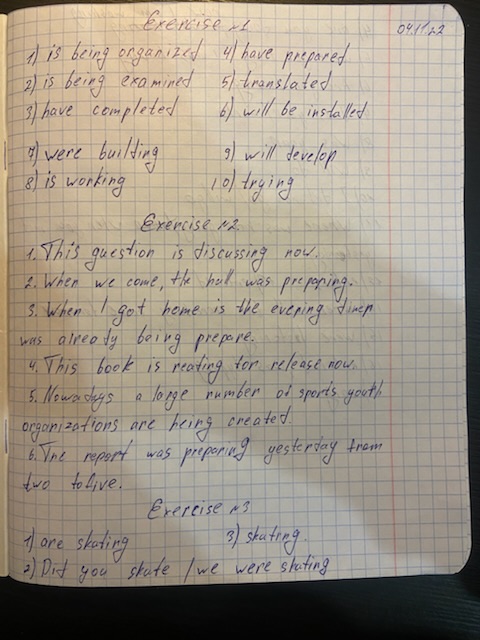 Exercise №1 04.11.22
1) is being organized 4) have prepared
2) is being examined 5) translated
3) have completed 6) will be installed
7) were building 9) will develop
8) is working 10) trying
Exercise №2
1. This question is discussing now.
2. When we come, the hall was preparing.
3. When I got home is the evering diner
was already being prepare.
4. This book is reating for release now.
5. Nowadays a large number of sports youth
organizations are being created.
6. The report was preparing yesterday from
two to five.
Exercise №3
1) are skating 3) skating.
2) Did you skate / we were skating